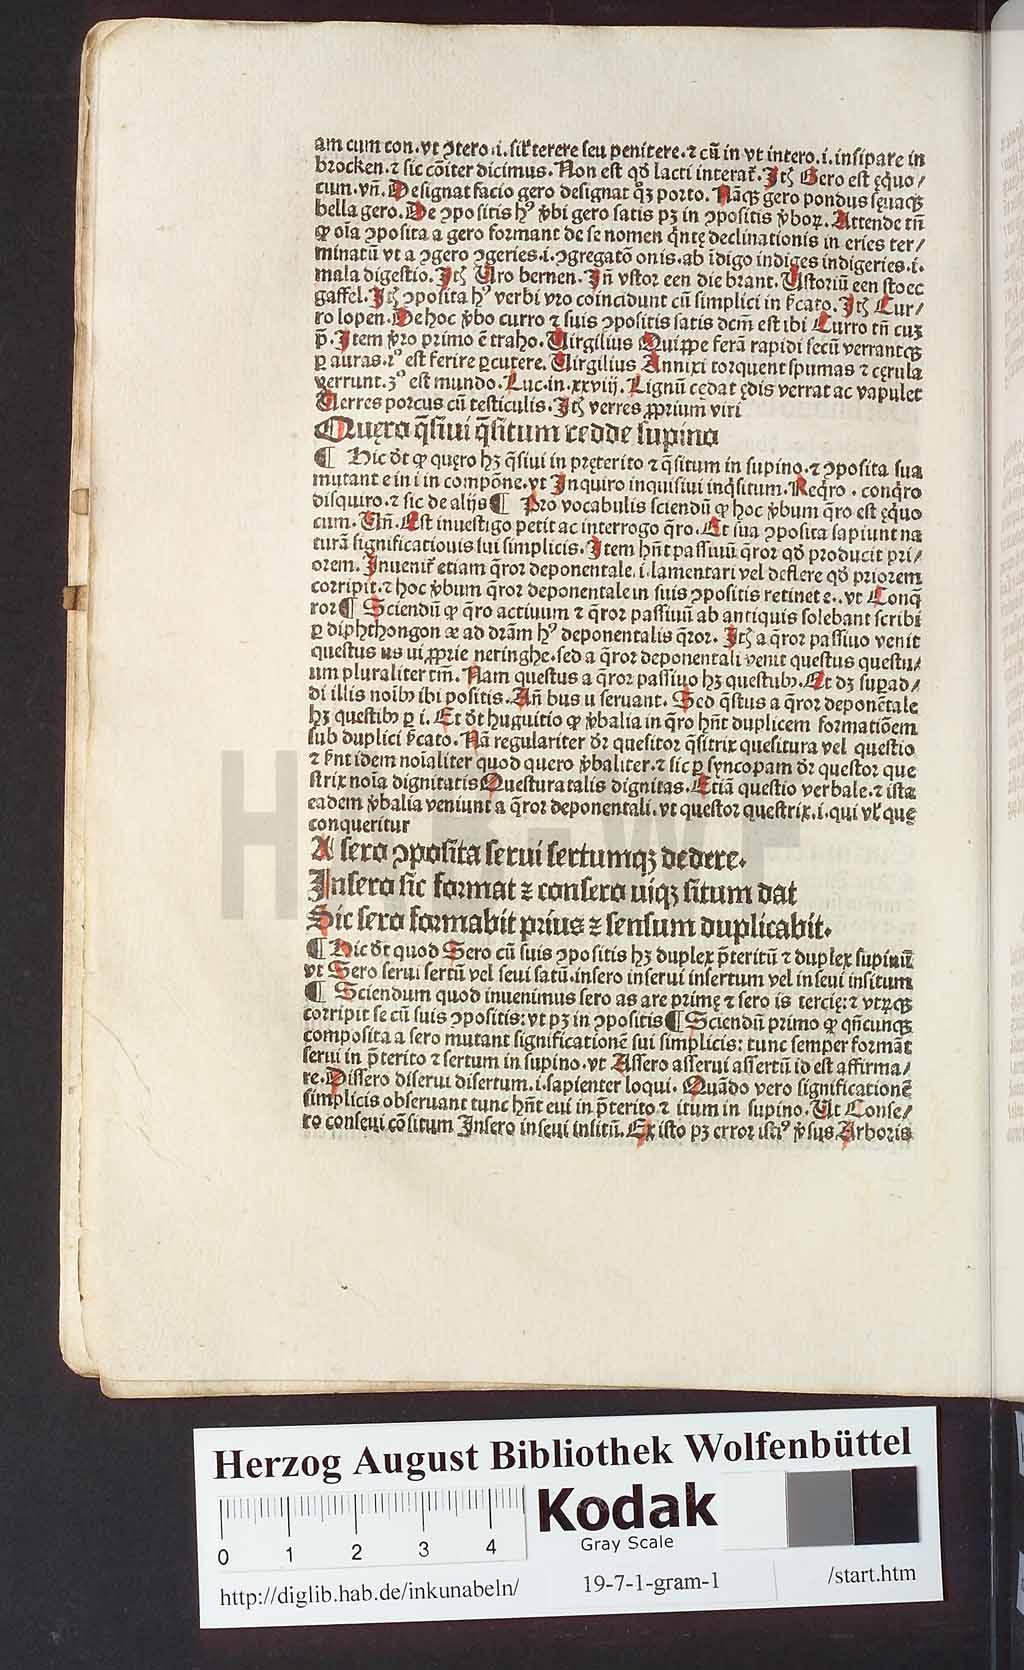 am cum con. vt ↄtero .i. siľ terere seu penitere. ⁊ cū in vt intero .i. insipare in
brocken. ⁊ sic cōīter dicimus. Non est qđ lacti interat᷑. Itꝫ Gero est ęquo/
cum. vn̄. Designat facio gero designat qꝫ porto. Nāqꝫ gero pondus sęuaqꝫ
bella gero. De ↄpositis hꝰ v̓bi gero satis pꝫ in ↄpositis v̓boꝝ. Attende tn̄
ꝙ oīa ↄposita a gero formant de se nomen qͥntę declinationis in eries ter/
minatū vt a ↄgero ↄgeries .i. ↄgregato onis. ab īdigo indiges indigeries .i.
mala digestio. Itꝫ Uro bernen. Jn̄ vstor een die brant. Ustoriū een stocc
gaffel. Itꝫ ↄposita hꝰ verbi vro coincidunt cū simplici in ſ̓cato. Itꝫ Cur/
ro lopen. De hoc v̓bo curro ⁊ suis ↄpositis satis dcm̄ est ibi Curro tn̄ cuꝫ
p̄. Item v̓ro primo ē traho. Uirgilius Quippe ferā rapidi secū verrantqꝫ
ꝑ auras. 2ͦ est ferire ꝑcutere. Uirgilius Annixi torquent spumas ⁊ cęrula
verrunt. 3ͦ est mundo. Luc. in. xxviij. Lignū cędat ędis verrat ac vapulet
Uerres porcus cū testiculis. Itꝫ verres ꝓprium viri
Quęro q̄siui q̄situm redde supino
¶ Hic dt̄ ꝙ quęro hꝫ q̄siui in pręterito ⁊ q̄situm in supino. ⁊ ↄposita sua
mutant e in i in compōne. vt Inquiro inquisiui inqͥsitum. Reqͥro . conqͥro
disquiro. ⁊ sic de alijs ¶ Pro vocabulis sciendū ꝙ hoc v̓bum q̄ro est ęquo
cum. Un̄. Est inuestigo petit ac interrogo q̄ro. Et sua ↄposita sapiunt na
turā significationis sui simplicis. Item hn̄t passiuū q̄ror qđ producit pri/
orem. Inuenit᷑ etiam q̄ror deponentale .i. lamentari vel deflere qđ priorem
corripit. ⁊ hoc v̓bum q̄ror deponentale in suis ↄpositis retinet e. vt Conq̄
ror ¶ Sciendū ꝙ q̄ro actiuum ⁊ q̄ror passiuū ab antiquis solebant scribi
ꝑ diphthongon æ ad dr̄am hꝰ deponentalis q̄ror. Itꝫ a q̄ror passiuo venit
questus us ui ꝓprie neringhe. sed a q̄ror deponentali venit questus questu/
um pluraliter tm̄. Nam questus a q̄ror passiuo hꝫ questubꝫ. Et dꝫ suꝑad/
di illis noībꝫ ibi positis. An̄ bus u seruant. Sed q̄stus a q̄ror deponētale
hꝫ questibꝫ ꝑ i. Et dt̄ huguitio ꝙ v̓balia in q̄ro hn̄t duplicem formatiōem
sub duplici ſ̓cato. Nā regulariter dr̄ quesitor q̄sitrix quesitura vel questio
⁊ ſ̓nt idem noīaliter quod quero v̓baliter. ⁊ sic ꝑ syncopam dr̄ questor que
strix noīa dignitatis Questura talis dignitas. Etiā questio verbale. ⁊ ista
eadem v̓balia veniunt a q̄ror deponentali. vt questor questrix .i. qui vľ quę
conqueritur
A sero ↄposita serui sertumqꝫ dedere.
Insero sic format ⁊ consero uiqꝫ situm dat
Sic sero formabit prius ⁊ sensum duplicabit.
¶ Hic dt̄ quod Sero cū suis ↄpositis hꝫ duplex p̄teritū ⁊ duplex supinū
vt Sero serui sertū vel seui satū. insero inserui insertum vel inseui insitum
¶ Sciendum quod inuenimus sero as are primę ⁊ sero is tercię: ⁊ vtrūqꝫ
corripit se cū suis ↄpositis: vt pꝫ in ↄpositis ¶ Sciendū primo ꝙ qn̄cunqꝫ
composita a sero mutant significationē sui simplicis: tunc semper formāt
serui in p̄terito ⁊ sertum in supino. vt Assero asserui assertū id est affirma/
re. Dissero diserui disertum .i. sapienter loqui. Quādo vero significationē
simplicis obseruant tunc hn̄t eui in p̄terito ⁊ itum in supino. Ut Conse/
ro conseui cōsitum Insero inseui insitū. Ex isto pꝫ error istiꝰ v̓sus Arboris
Herzog August Bibliothek Wolfenbüttel
Kodak
Gray Scale
0 1 2 3 4
http://diglib.hab.de/inkunabeln/ 19-7-1-gram-1 /start.htm